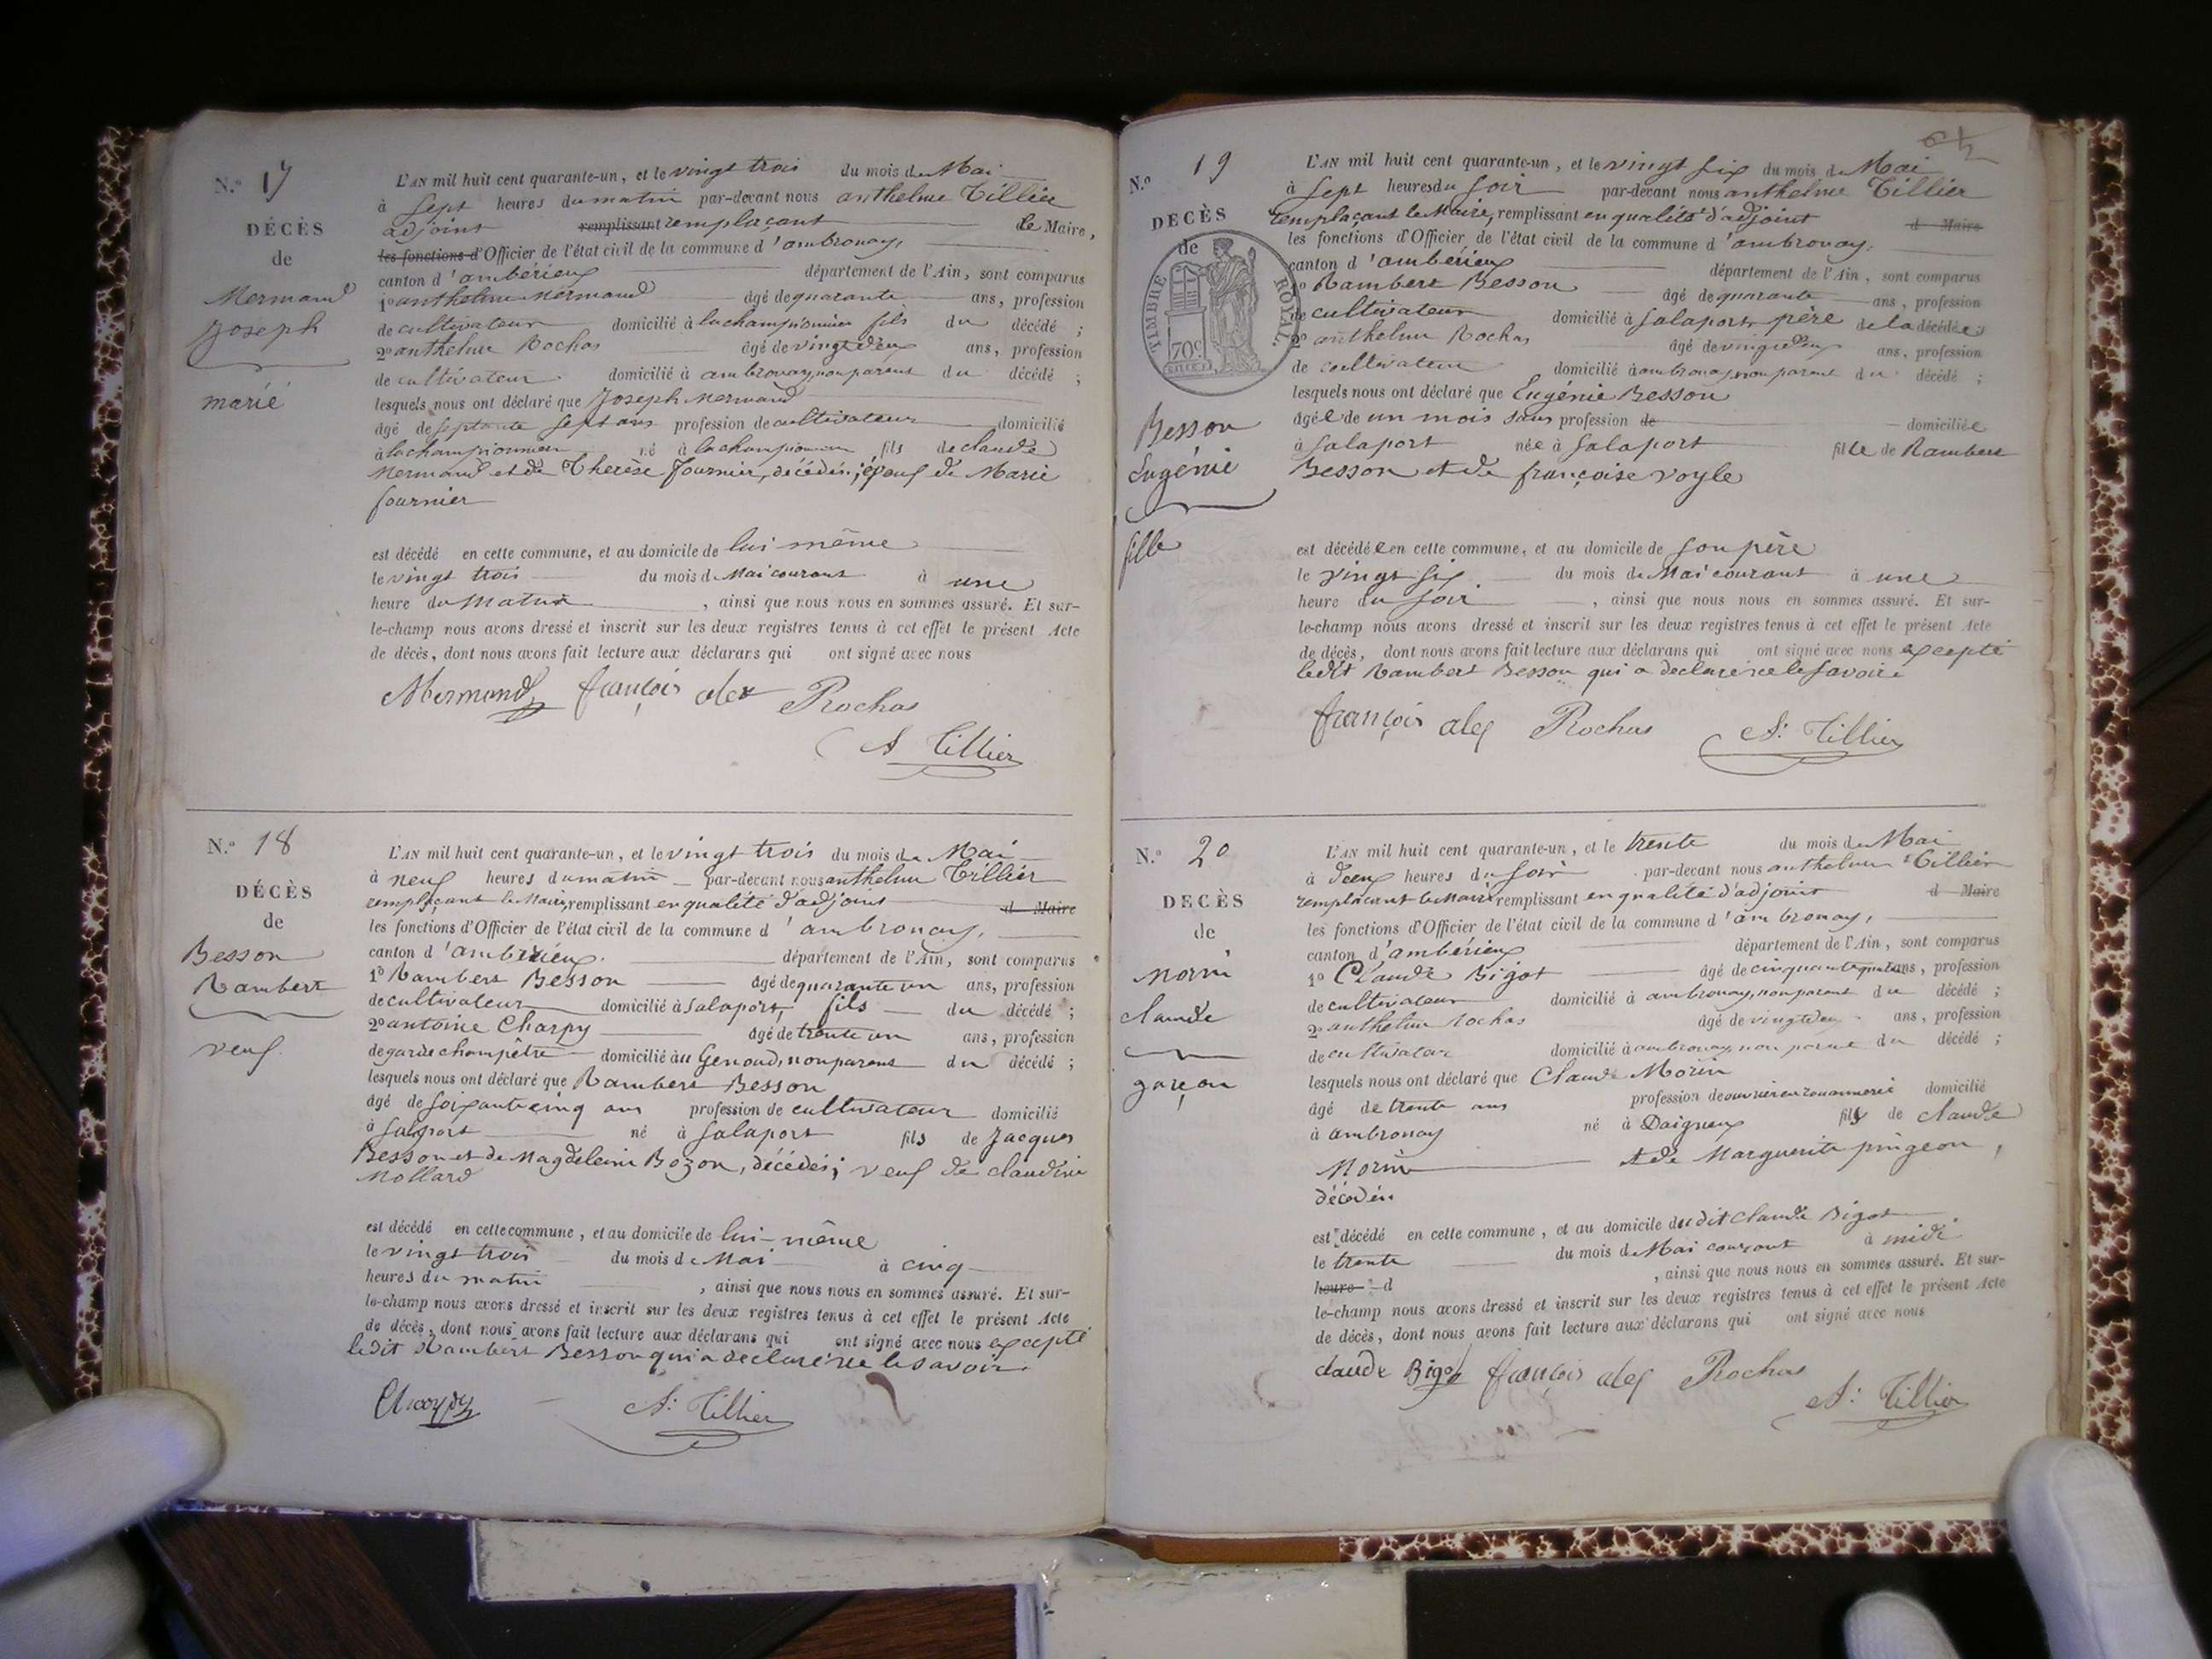 N.º 17
DÉCÈS
de
Mermand
Joseph
marié
L'AN mil huit cent quarante-un, et le vingt trois du mois de Mai
à sept heures du matin par-devant nous anthelme Tillier
adjoint remplissant remplaçant le Maire,
les fonctions d'Officier de l'état civil de la commune d'ambronay,
canton d'ambérieux département de l'Ain, sont comparus
1º anthelme Mermand âgé de quarante ans, profession
de cultivateur domicilié à lachampionnière fils du décédé ;
2º anthelme Rochas âgé de vingt deux ans, profession
de cultivateur domicilié à ambronay, non parent du décédé ;
lesquels nous ont déclaré que Joseph Mermand
âgé de septante sept ans profession de cultivateur domicilié
à né à fils de claude
Mermand et de Therèse fournier, décédés ; époux de Marie
fournier
est décédé en cette commune, et au domicile de lui même
le vingt trois du mois de Mai courant à une
heure du Matin , ainsi que nous nous en sommes assuré. Et sur-
le-champ nous avons dressé et inscrit sur les deux registres tenus à cet effet le présent Acte
de décès, dont nous avons fait lecture aux déclarans qui ont signé avec nous
Mermand françois alex Rochas
A Tillier
N.º 18
DÉCÈS
de
Besson
Rambert
veuf
L'AN mil huit cent quarante-un, et le vingt trois du mois de Mai
à neuf heures du matin par-devant nous anthelme Tillier
remplaçant le Maire, remplissant en qualité d'adjoint d Maire
les fonctions d'Officier de l'état civil de la commune d'ambronay,
canton d'ambérieux département de l'Ain, sont comparus
1º Rambert Besson âgé de quarante un ans, profession
de cultivateur domicilié à Salaport, fils du décédé ;
2º antoine Charpy âgé de trente un ans, profession
de garde champêtre domicilié au Genoud, non parent du décédé ;
lesquels nous ont déclaré que Rambert Besson
âgé de soixante cinq ans profession de cultivateur domicilié
à Salaport né à Salaport fils de Jacques
Besson et de Magdeleine Bozon, décédés ; veuf de claudine
Mollard
est décédé en cette commune, et au domicile de lui-même
le vingt trois du mois de Mai à cinq
heures du matin , ainsi que nous nous en sommes assuré. Et sur-
le-champ nous avons dressé et inscrit sur les deux registres tenus à cet effet le présent Acte
de décès, dont nous avons fait lecture aux déclarans qui ont signé avec nous excepté
ledit Rambert Besson qui a declaré ne le savoir.
A. Tillier
N.º 19
DÉCÈS
de
TIMBRE ROYAL.
70c
Besson
Eugénie
fille
L'AN mil huit cent quarante-un, et le vingt six du mois de Mai
à sept heures du soir par-devant nous anthelme Tillier
remplaçant le Maire, remplissant en qualité d'adjoint d Maire
les fonctions d'Officier de l'état civil de la commune d'ambronay,
canton d'ambérieux département de l'Ain, sont comparus
1º Rambert Besson âgé de quarante ans, profession
de cultivateur domicilié à Salaport, père de la décédée
2º anthelme Rochas âgé de vingt deux ans, profession
de cultivateur domicilié à ambronay, non parent du décédé ;
lesquels nous ont déclaré que Eugénie Besson
âgée de un mois sans profession de domiciliée
à Salaport née à Salaport fille de Rambert
Besson et de françoise voyle
est décédée en cette commune, et au domicile de son père
le vingt six du mois de Mai courant à une
heure du soir , ainsi que nous nous en sommes assuré. Et sur-
le-champ nous avons dressé et inscrit sur les deux registres tenus à cet effet le présent Acte
de décès, dont nous avons fait lecture aux déclarans qui ont signé avec nous excepté
ledit Rambert Besson qui a declaré ne le savoir.
françois alex Rochas A. Tillier
N.º 20
DÉCÈS
de
Morin
claude
garçon
L'AN mil huit cent quarante-un, et le trente du mois de Mai
à deux heures du soir par-devant nous anthelme Tillier
remplaçant le Maire remplissant en qualité d'adjoint d Maire
les fonctions d'Officier de l'état civil de la commune d'ambronay,
canton d'ambérieux département de l'Ain, sont comparus
1º Claude Bigot âgé de cinquante quatre ans, profession
de cultivateur domicilié à ambronay, non parent du décédé ;
2º anthelme Rochas âgé de vingt deux ans, profession
de cultivateur domicilié à ambronay, non parent du décédé ;
lesquels nous ont déclaré que Claude Morin
âgé de trente ans profession de ouvrier en domicilié
à ambronay né à Daigneux fils de claude
Morin et de Marguerite pingeon,
décédés
est décédé en cette commune, et au domicile dudit claude Bigot
le trente du mois de Mai courant à midi
heure d , ainsi que nous nous en sommes assuré. Et sur-
le-champ nous avons dressé et inscrit sur les deux registres tenus à cet effet le présent Acte
de décès, dont nous avons fait lecture aux déclarans qui ont signé avec nous
claude Bigot françois alex Rochas
A. Tillier